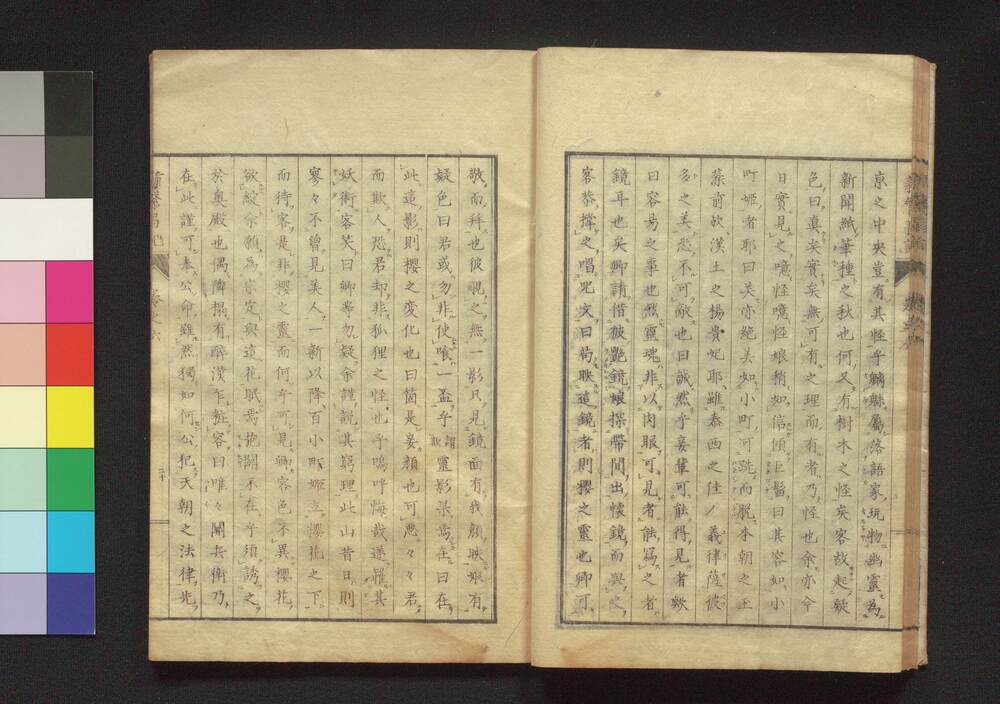 京之中央豈有其怪乎魑魅屬落語家玩物幽靈為
新聞紙筆種之秋也何又有樹木之怪矣客故起疑
色曰真矣實矣無可有之理而有者乃怪也余亦今
日實見之噫怪噫怪娘稍如信傾巨髷曰其容如小
町姬者耶曰美亦絕美如小町可跣而脫本朝之玉
藻前歟漢土之楊貴妃耶雖泰西之佳人義律薩彼
多之美恐不可敵也曰誠然乎妾輩可能得見者歟
曰容易之事也然靈魂非以肉眼可見者能寫之者
鏡耳也矣卿請借彼艷鏡孃探帶間出懷鏡而與之
客恭擎之唱咒文曰苟映這鏡者則櫻之靈也卿可
敬而拜也彼覗之無一影只見鏡面有我顏映娘有
疑色曰君或勿非使喰一盃乎謂欺靈影果焉在曰在
此這影則櫻之變化也曰箇是妾顏也可惡々々君
而欺人恐君却非狐狸之怪也乎嗚呼悔哉遂罹其
妖術客笑曰卿等勿疑余謹説其窮理此山昔日則
寥々不曾見美人一新以降百小町姬立櫻花之下
而待客是非櫻之靈而何乎可見卿容色不異櫻花
欲紋余願為宗定與這花眠焉花關不在乎須誘之
於奧殿也偶隣搨有醉漢乍粧容曰唯々開兵衛乃
在此謹可奉公命雖然獨如何公犯天朝之法律兆
新繁昌記
二十